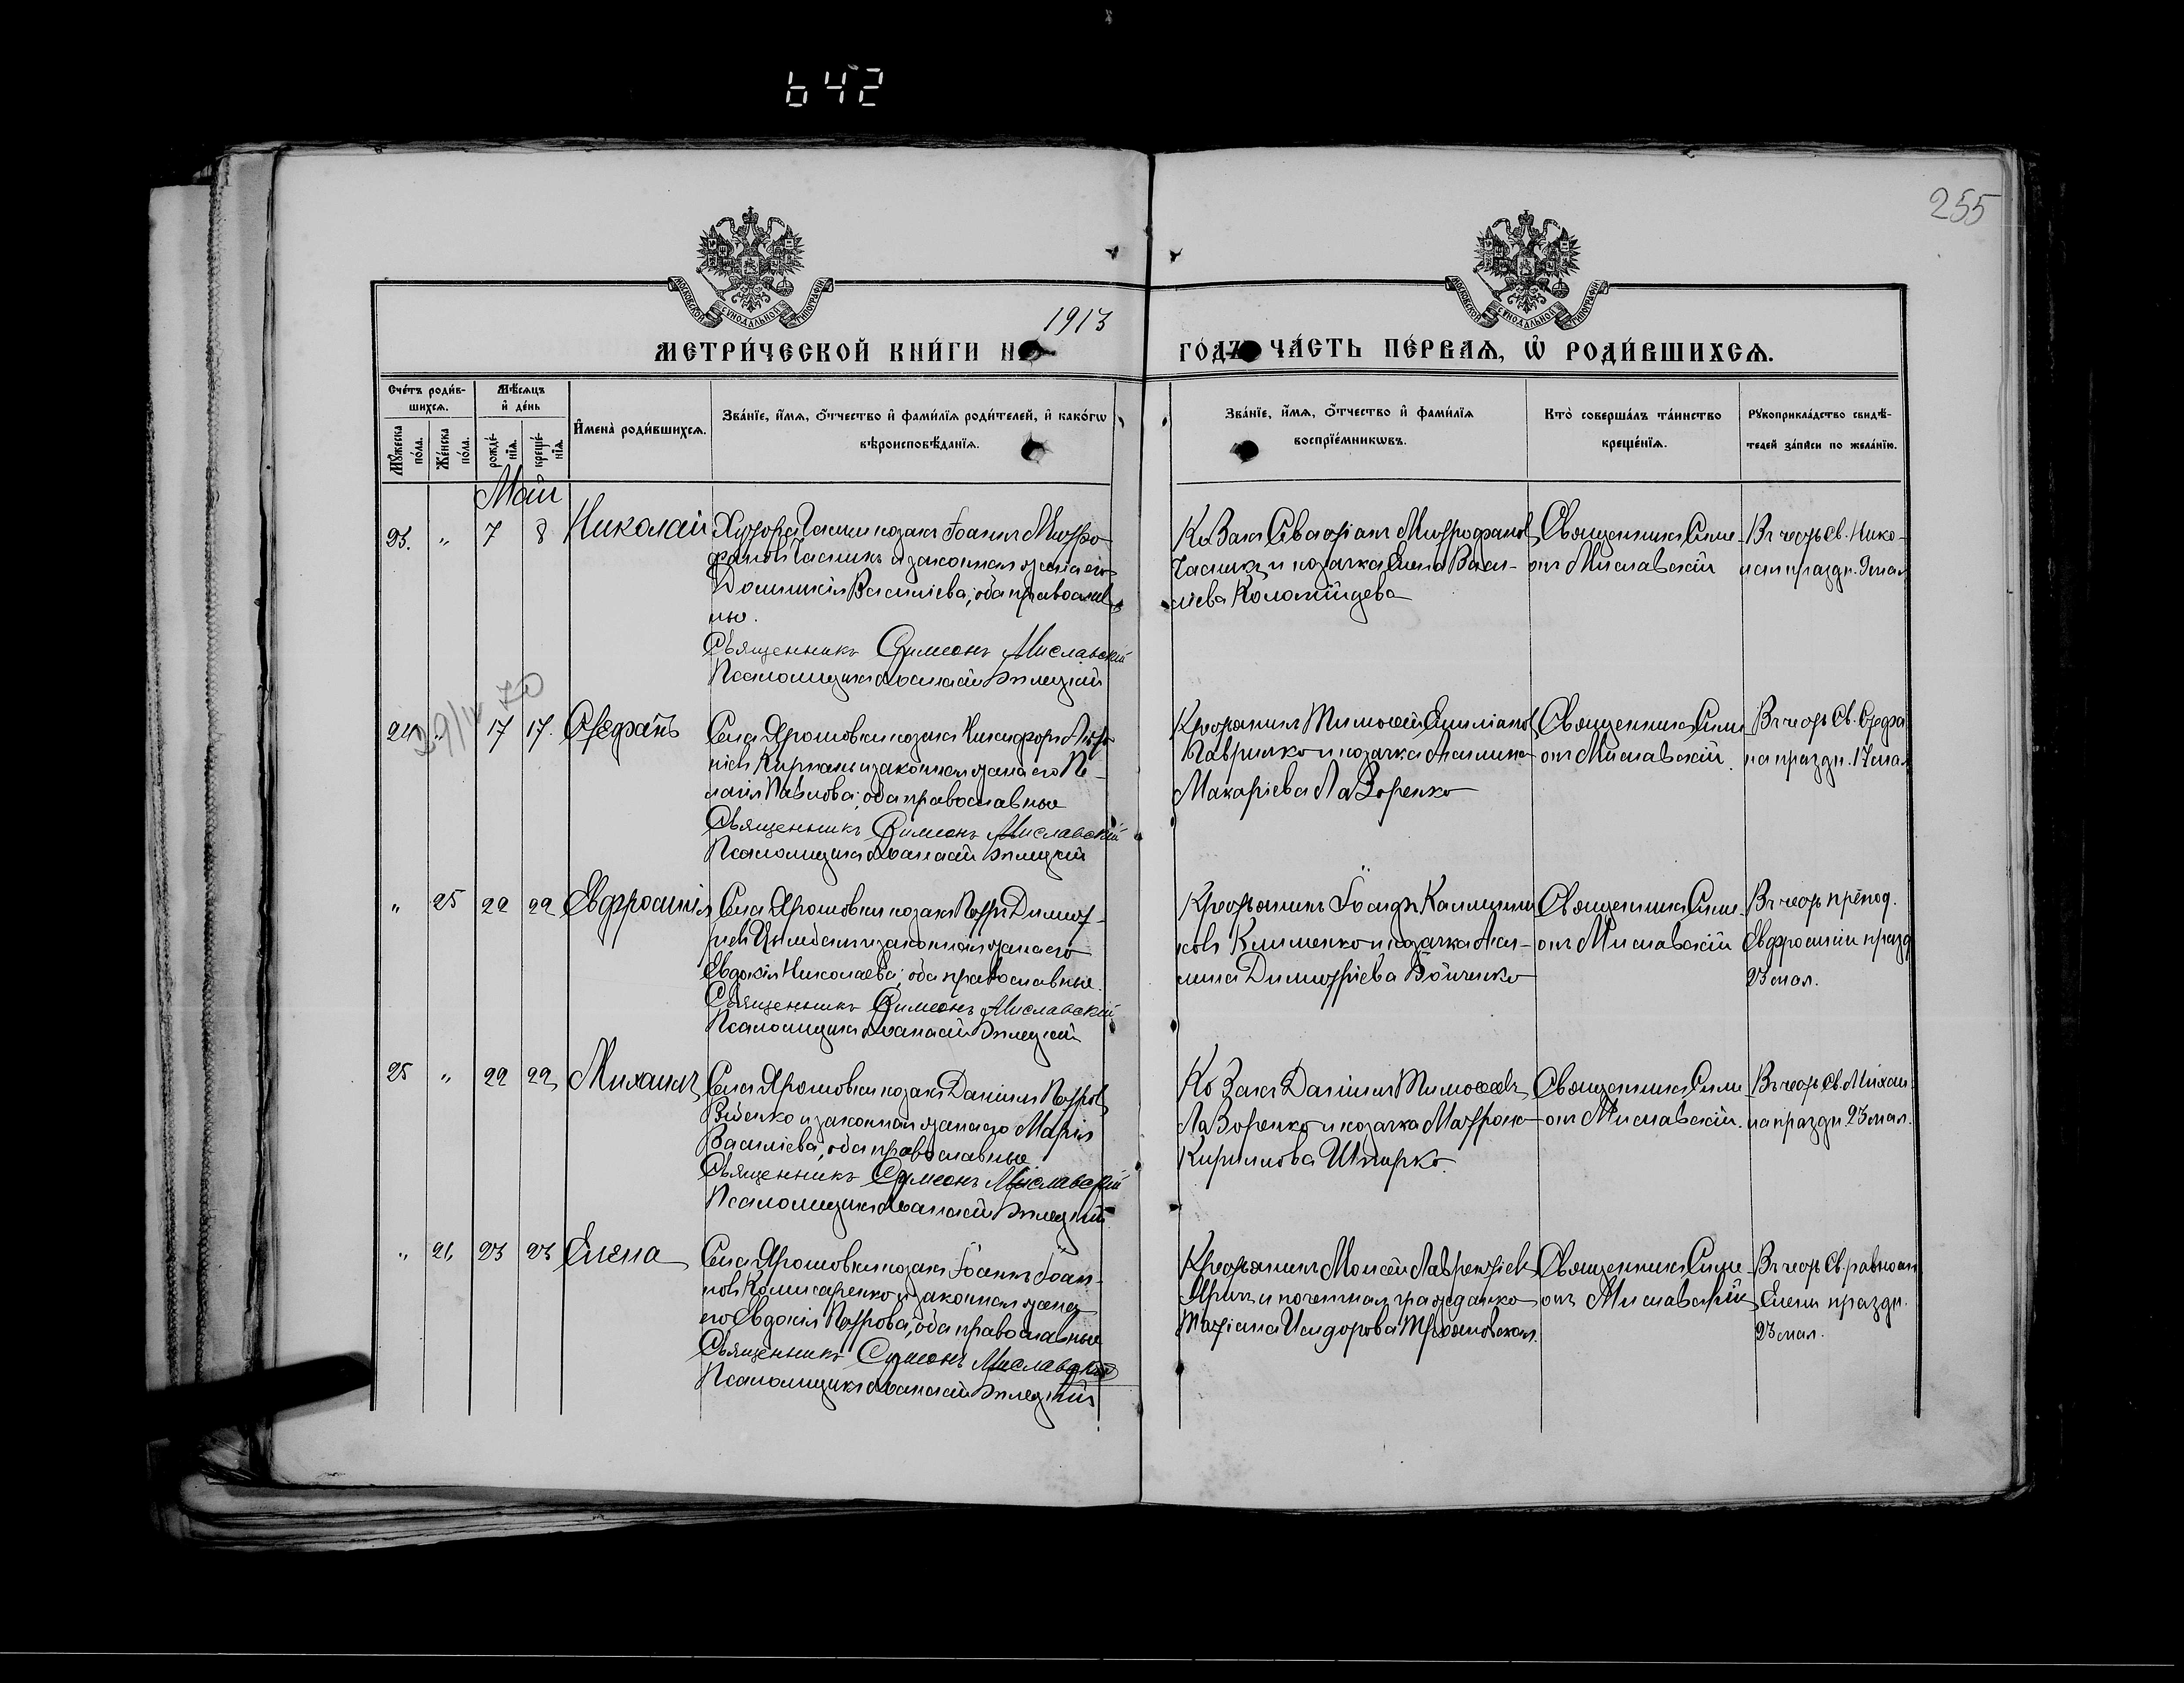 642
255
МОСКОВСКОЙ СУНОДАЛЬНОЙ ТИПОГРАФІИ
МОСКОВСКОЙ СУНОДАЛЬНОЙ ТИПОГРАФІИ
1913
МЕТРИ́ЧЕСКОЙ КНИ́ГИ Н
ГО́ДЪ ЧА́СТЬ ПЕ́РВАѦ, Ѡ҆ РОДИ́ВШИХСѦ.
Сче́тъ роди́в-
шихсѧ.
Мꙋ́жеска по́ла.
Же́нска по́ла.
Мѣ́сѧцъ
и҆ де́нь
рожде́-
нїѧ.
креще́-
нїѧ.
И҆мена̀ роди́вшихсѧ.
Зва́нїе, и҆́мѧ, ѻ҆́тчество и҆ фами́лїѧ роди́телей, и҆ како́гѡ
вѣроисповѣ́данїѧ.
Зва́нїе, и҆́мѧ, ѻ҆́тчество и҆ фами́лїѧ
воспрїе́мникѡвъ.
Кто̀ соверша́лъ та́инство
креще́нїѧ.
Рꙋкоприкла́дство свидѣ́-
телей за́писи по жела́нїю.
Май
23. " 7 8 Николай
Хутора Часники козакъ Іоаннъ Митро-
фановъ Часникъ и законная жена его
Василіева; оба православ-
ные.
Священникъ Симеонъ Миславскій
Псаломщикъ Аѳанасій Бѣлецкій
Козакъ Митрофановъ
Часникъ и козачка Елена Васи-
ліева Коломійцева
Священникъ Симе-
онъ Миславскій
Въ честь Св. Нико-
лая праздн. 9 мая
29/IV 70
24 " 17 17. Стефанъ
Села Ярошовки козакъ Никифоръ
Кирпань и законная жена его Пе-
лагія Павлова; оба православные
Священникъ Симеонъ Миславскій
Псаломщикъ Аѳанасій Бѣлецкій
Крестьянинъ Тимоѳей Емиліановъ
Гавриленко и козачка Акилина
Макаріева Лазоренко
Священникъ Симе
онъ Миславскій.
Въ честь Св. Стефа
на праздн. 17 мая
" 25 22 22 Евфросинія
Села Ярошовки козакъ Петръ Димит-
ріевъ Цымбалъ и законная жена его
Евдокія Николаева; оба православные.
Священникъ Симеонъ Миславскій
Псаломщикъ Аѳанасій Бѣлецкій
Крестьянинъ Іосифъ Каллини-
ковъ Клименко и козачка Аки-
лина Димитріева Бойченко
Священникъ Симе
онъ Миславскій
Въ честь препод.
Евфросиніи празд
23 мая.
25 " 22 22 Михаилъ
Села Ярошовки козакъ Даніилъ Петровъ
и законная жена его Марія
Василіева; оба православные
Священникъ Симеонъ Миславскій
Псаломщикъ Аѳанасій Бѣлецкій
Козакъ Даніилъ Тимоѳеевъ
Лазоренко и козачка Матрона
Кириллова Шпырко.
Священникъ Симе
онъ Миславскій.
Въ честь Св. Михаи-
ла праздн. 23 мая.
" 26 23 23 Елена
Села Ярошовки козакъ Іоаннъ Іоан-
новъ Комисаренко и законная жена
его Евдокія Петрова; оба православные
Священникъ Симеонъ Миславскій
Псаломщикъ Аѳанасій Бѣлецкій
Крестьянинъ Моисей Лаврентіевъ
и почетная гражданка
Татіана Исидорова
Священникъ Симе-
онъ Миславскій
Въ честь Св. равноап
Елены праздн.
23 мая.